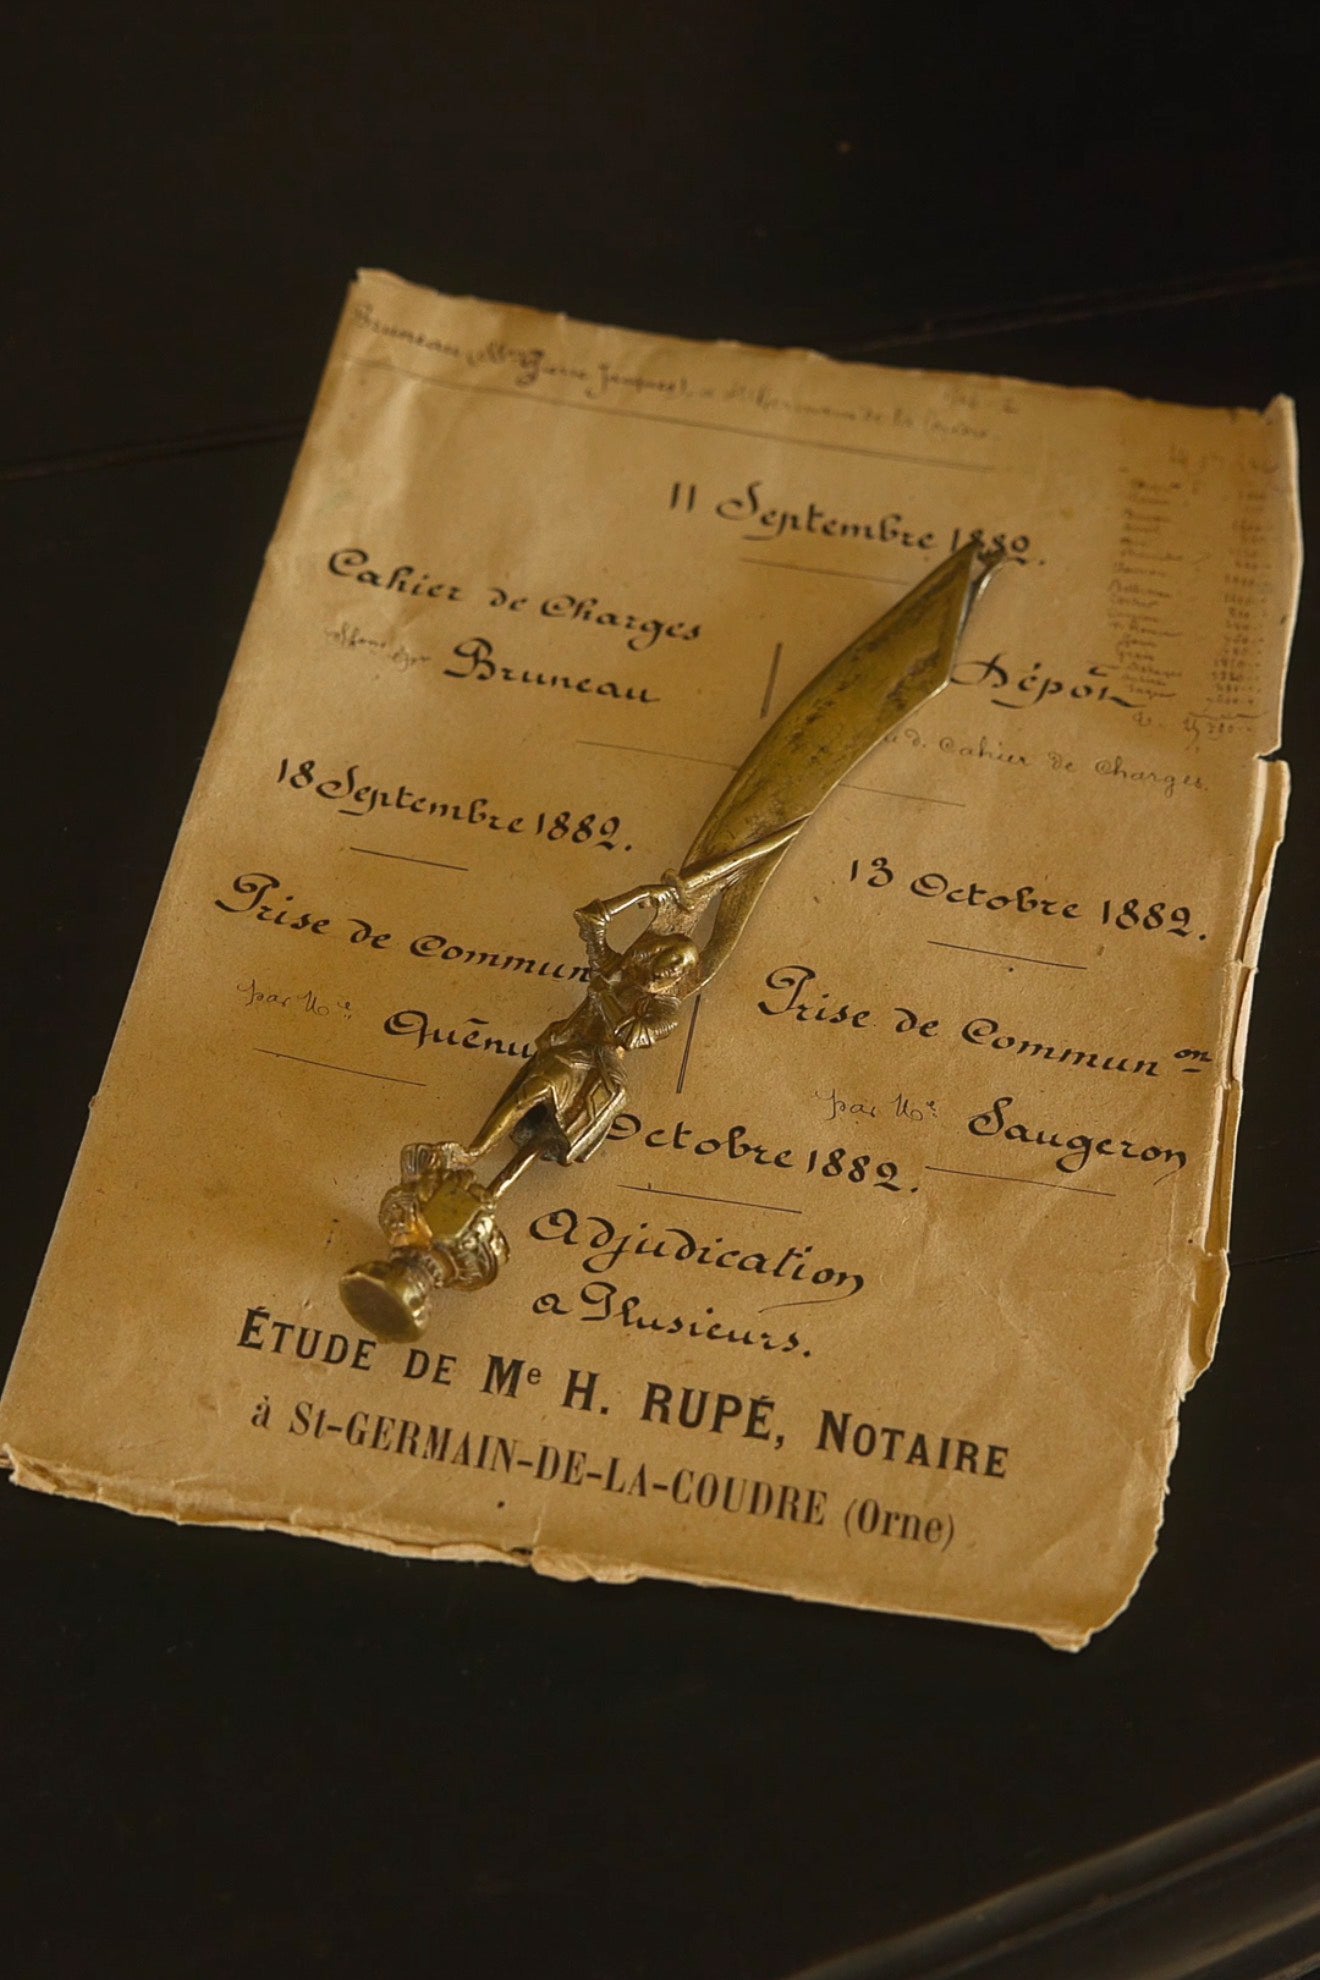 Bruneau (Mr Pierre Jacques), a St Germain de la Coudre.
11 Septembre 1882.
Cahier de Charges
Bruneau
Dépôt
d. Cahier de Charges.
18 Septembre 1882.
13 Octobre 1882.
Prise de Commun
par Me Quénu
Prise de Commun on
par Me Saugeron
Octobre 1882.
Adjudication
a Plusieurs.
ÉTUDE DE Me H. RUPÉ, NOTAIRE
à St-GERMAIN-DE-LA-COUDRE (Orne)